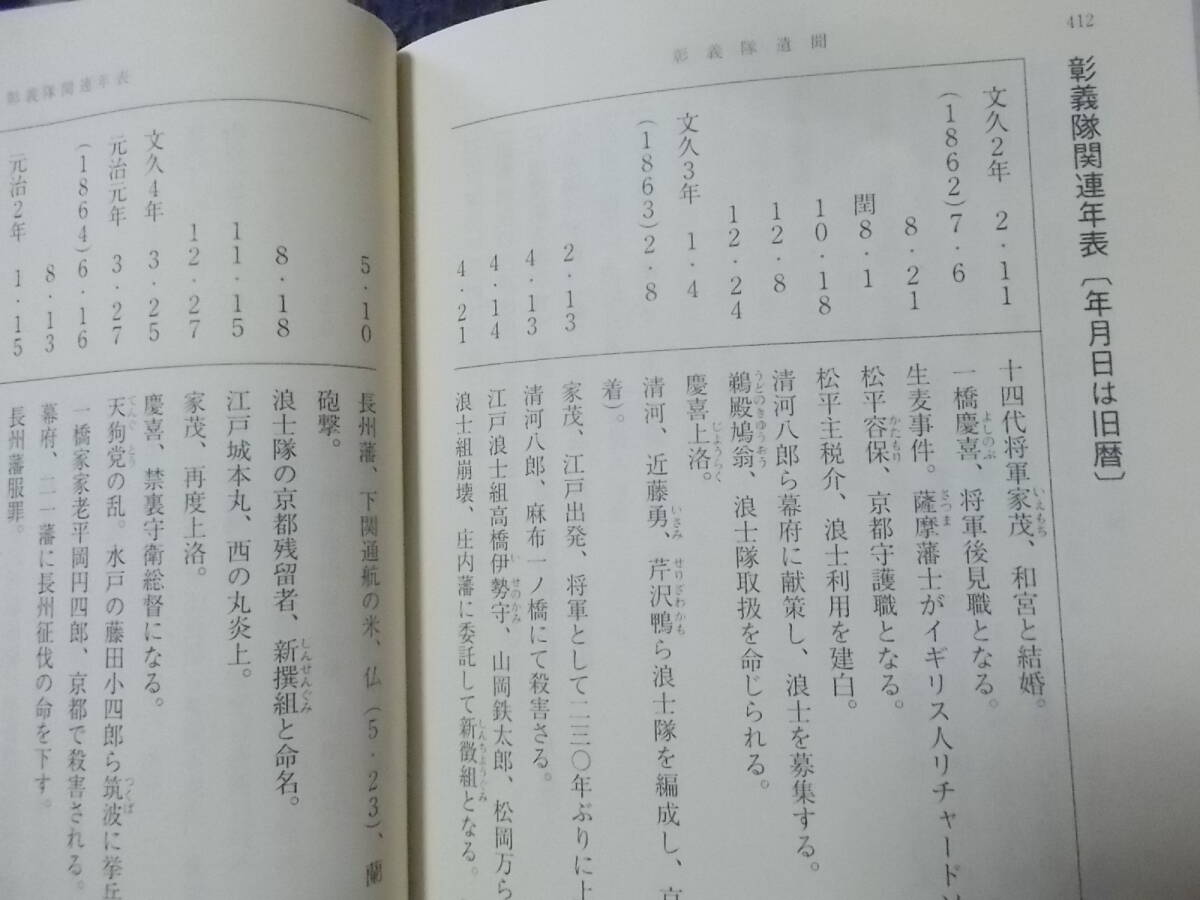 412
彰義隊遺聞
彰義隊関連年表〔年月日は旧暦〕
文久2年 2・11 十四代将軍家茂、和宮と結婚。
(1862) 7・6 一橋慶喜、将軍後見職となる。
8・21 生麦事件。薩摩藩士がイギリス人リチャード
閏8・1 松平容保、京都守護職となる。
10・18 松平主税介、浪士利用を建白。
12・8 清河八郎ら幕府に献策し、浪士を募集する。
12・24 鵜殿鳩翁、浪士隊取扱を命じられる。
文久3年 1・4 慶喜上洛。
(1863) 2・8 清河、近藤勇、芹沢鴨ら浪士隊を編成し、京
着)。
2・13 家茂、江戸出発、将軍として二二〇年ぶりに上
4・13 清河八郎、麻布一ノ橋にて殺害さる。
4・14 江戸浪士組高橋伊勢守、山岡鉄太郎、松岡万ら
4・21 浪士組崩壊、庄内藩に委託して新徴組となる。
彰義隊関連年表
5・10 長州藩、下関通航の米、仏(5・23)、蘭
砲撃。
8・18 浪士隊の京都残留者、新撰組と命名。
11・15 江戸城本丸、西の丸炎上。
12・27 家茂、再度上洛。
文久4年 3・25 慶喜、禁裏守衛総督になる。
元治元年 3・27 天狗党の乱。水戸の藤田小四郎ら筑波に挙兵
(1864) 6・16 一橋家家老平岡円四郎、京都で殺害される。
8・13 幕府、二一藩に長州征伐の命を下す。
元治2年 1・15 長州藩服罪。